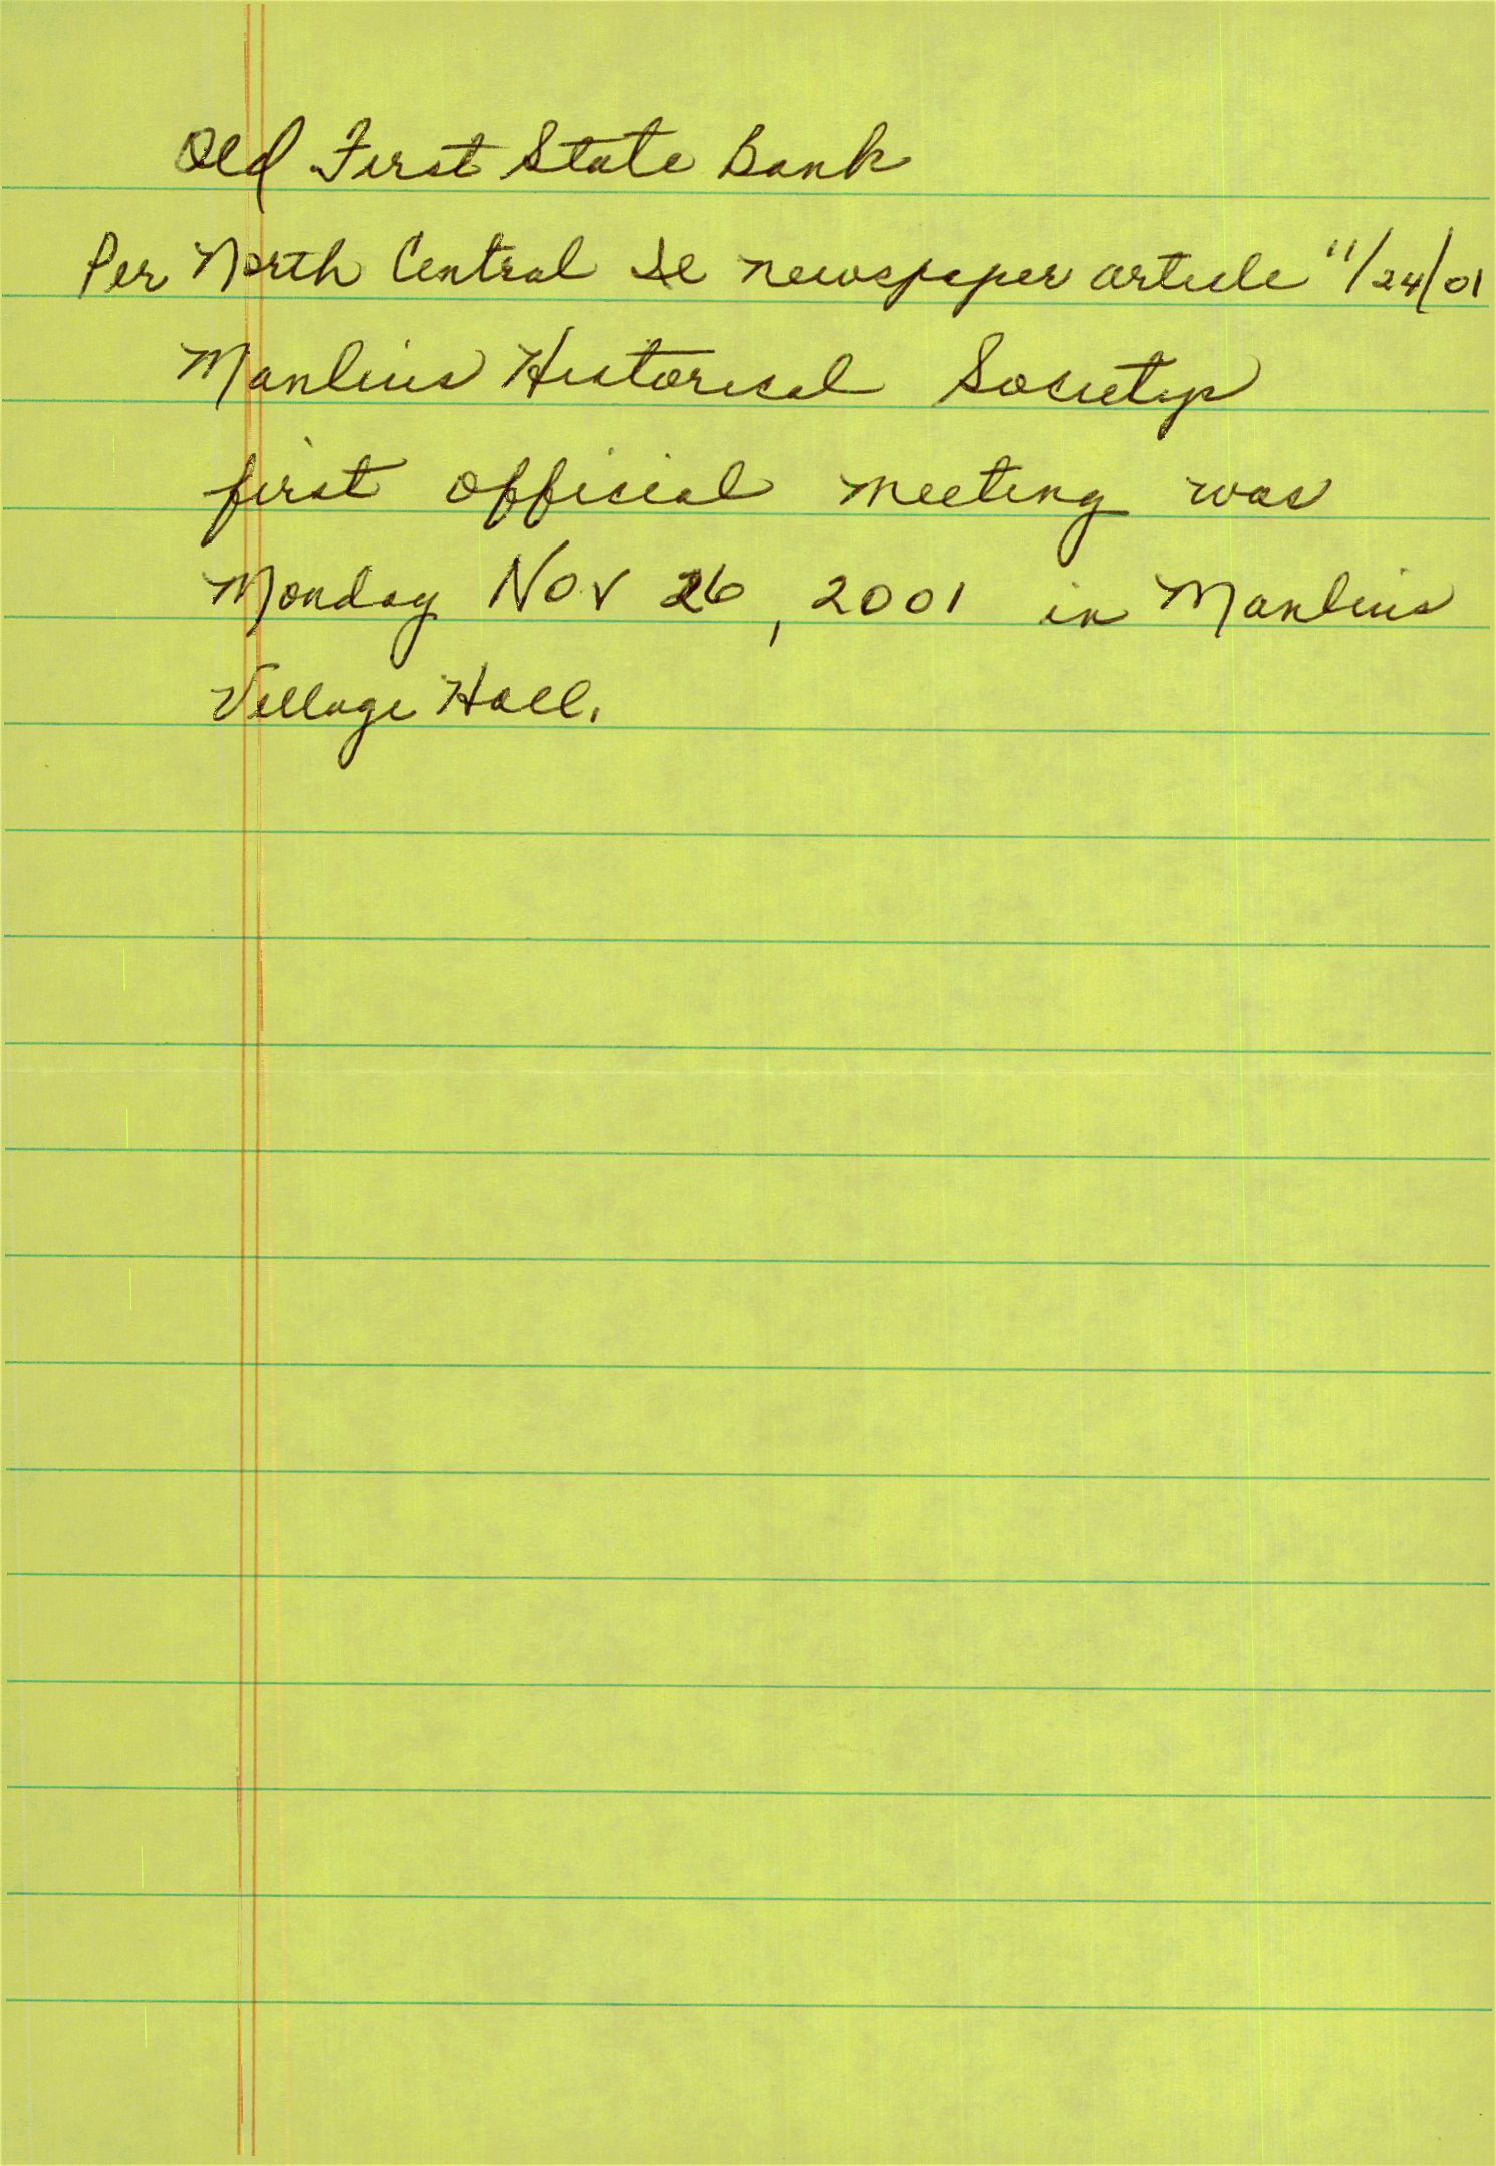 Old First State Bank
Per North Central Il newspaper article 11/24/01
Manlius Historical Society
first official meeting was
Monday Nov 26, 2001 in Manlius
Village Hall.